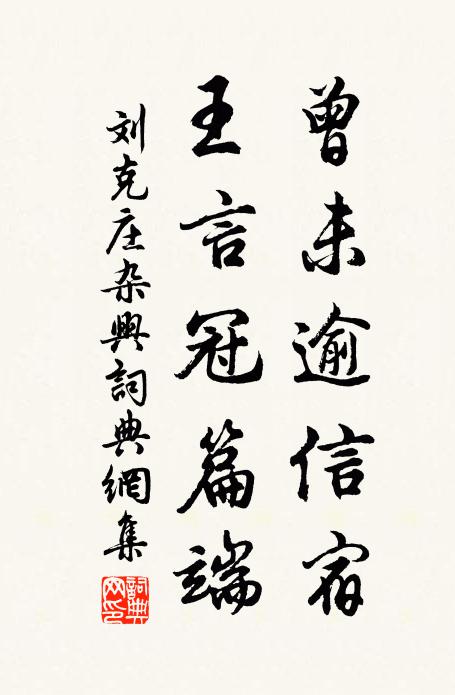 曾未逾信宿
王言冠篇端
刘克庄杂興詞典網集
詞典网印